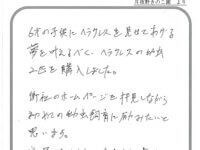 月夜野きのこ園 より
6才の子供にヘラクレスを見せてあげる
夢を叶えるべく、ヘラクレスの幼虫
2匹を購入しました。
御社のホームページを拝見しながら
初めての幼虫飼育に励みたいと
思います。